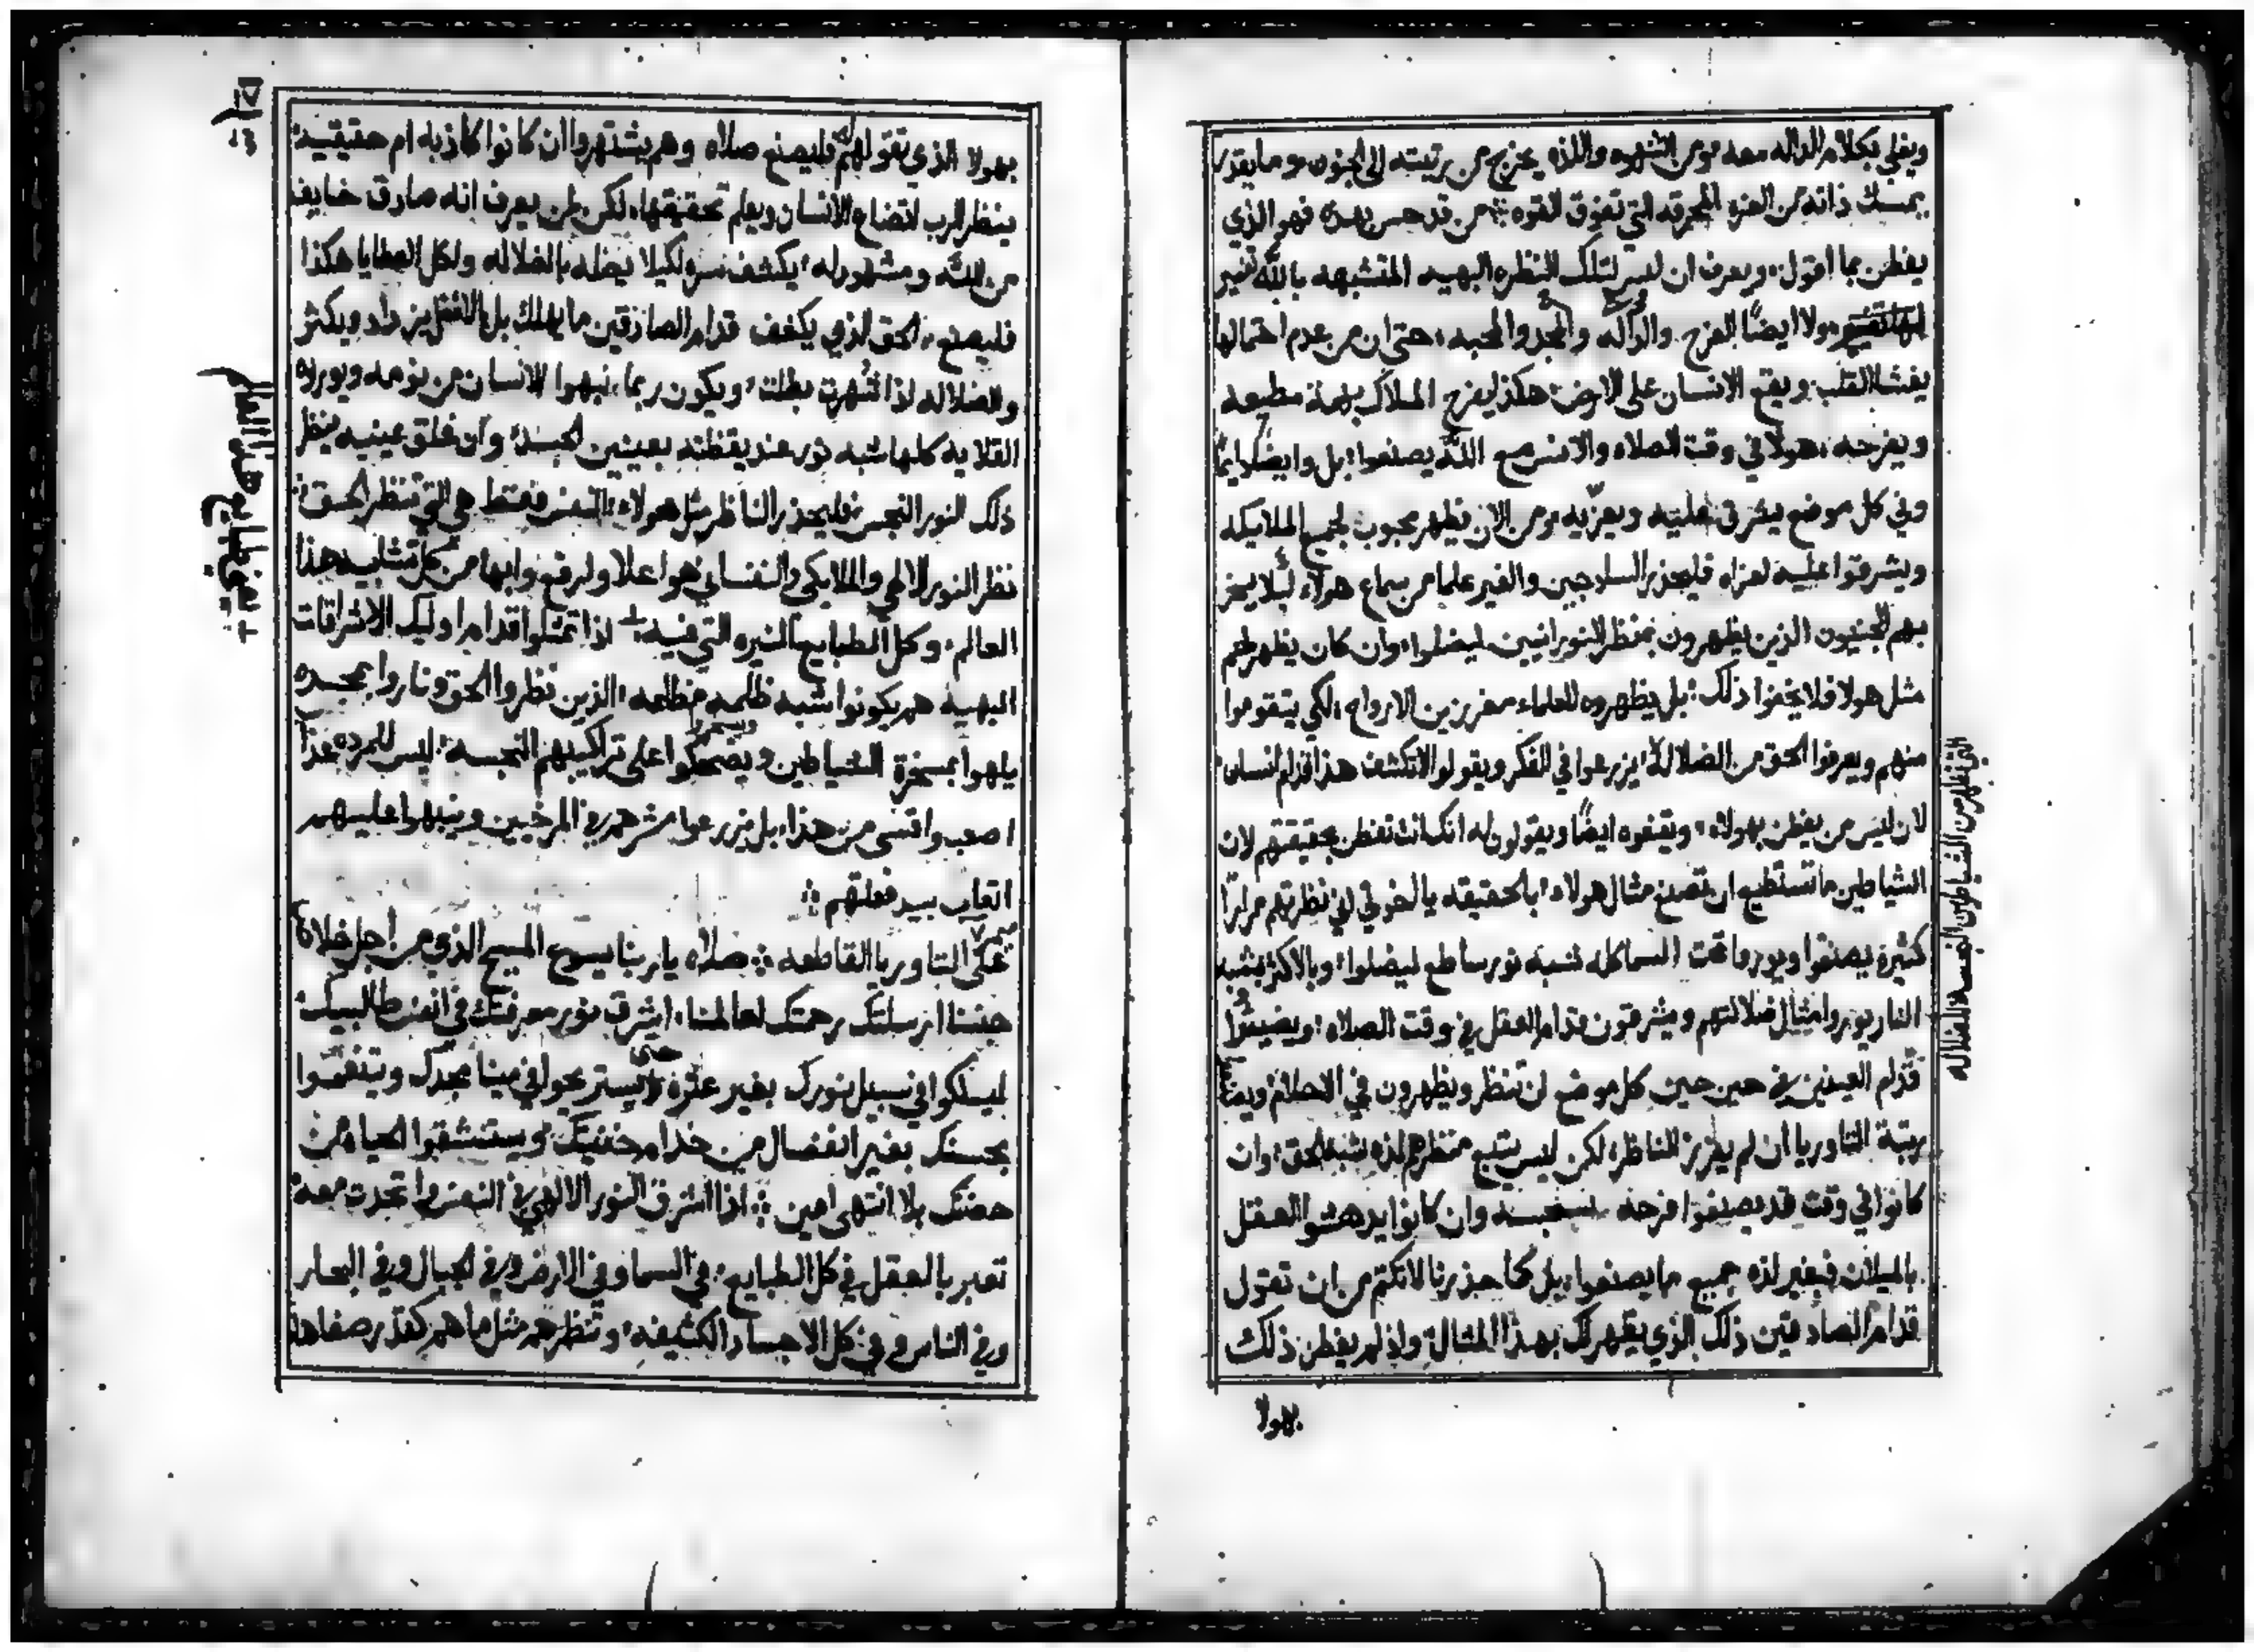 ويغلي بكلام الداله معه ومن الشهوه واللذه يخرج من رتبته الى الجنون وما يقدر
يمسك ذاته من العزه المحرقه التي تفوق القوه من قد حس بهذه فهو الذي
يفطن بما اقول ويعرف ان ليس لتلك النظره البهيه المتشبهه بالله تغير
هولا ايضًا الفرح والداله والمجد والمحبه حتى ان من عدم احتمالها
يغشا القلب ويقع الانسان على الارض هكذا يفرح الملاك بلهبة مطبعه
ويفرحه هولا في وقت الصلاه والانس مع الله يصنعوا بل وايضًا
وفي كل موضع يشرق عليه ويعزيه ومن الان يظهر محبوب لجميع الملايكه
ويشرقوا عليه لعزاه فليحذر السادجين والغير علما من سماع هولاء ليلا يحز
بهم الجنيون الذين يظهرون بمنظر النورانيين ليضلوا وان كان يظهر لهم
مثل هولا فلا يخفوا ذلك بل يظهروه للعلماء مفرزين الارواح لكي يتقوموا
منهم ويعرفوا الحق من الضلاله يزرعوا في الفكر ويقولوا لا تكشف هذا قدام انسان
لان ليس من يفطن بهولاء ويقنعوه ايضًا ويقولون له انك انت تفطن بحقيقتهم لان
الشياطين ما تستطيع ان تصنع مثال هولاء بالحقيقه يا اخوتي انني نظرتهم مرارًا
كثيرة يصنعوا ويوروا تحت السما كله شبه نور ساطع ليضلوا وبالاكثر بشبه
النار يوروا مثال ضلالتهم ويشرقون قدام العقل في وقت الصلاه ويضيئوا
قدام العينين في حين حين كل موضع ان تنظر ويظهرون في الاحلام
برتبة التاوريا ان لم يفرز المناظر لكن ليس يتبع منظرهم لذه شبه الحق وان
كانوا في وقت قد يصنعوا فرحه وان كانوا يدهشوا العقل
بالميلان فبغير لذه جميع ما يصنعوا بل كما حذرنا لا تكتم من ان تقول
قدام الصادقين ذلك الذي يظهر لك بهذا المثال واذ لم يفطن ذلك
بهولا
التي تظهر من الشياطين النجسه للضلاله
بهولا الذي تقول لهم فليصنع صلاه وهم يشتهروا ان كانوا كاذبه ام حقيقيه
ينظر الرب لتضاع الانسان ويعلم تحقيقها لكن لمن يعرف انه صادق خايف
من الله ومشهور له يكشف سره لكيلا يضله بالضلاله ولكل العطايا هكذا
فليصنع الحق الذي يكشف قدام الصادقين ما يهلك بل بالافضل يزداد ويكثر
والضلاله اذا اشهرت بطلت ويكون ربما ينبهوا الانسان من نومه ويوروه
القلايه كلها شبه نور عند يقظته بعينين الجسد وان غلق عينيه ينظر
ذلك النور النجس فليحذر الناظر مثل هولاء النفس فقط هي التي تنظر الحق
نظر النور الالهي والملايكي والنفساني هو اعلا وارفع وابها من كل تشابيه هذا
العالم وكل الطبايع المنيره التي فيه اذا تمثلوا قدام اوليك الاشراقات
البهيه هم يكونوا شبه ظلمه مظلمه الذين نظروا الحق وناروا بمجده
يلهوا بمسخرة الشياطين ويضحكوا على تراكيبهم النجسه ليس للمرده عذا
اصعب واقسى من هذا بل يزرعوا شرهم في المرخيين وينبهوا عليهم
اتعاب بيد فعلتهم
على التاوريا القاطعه صلاه يا ربنا يسوع المسيح الذي من اجل خلاص
جنسنا ارسلتك رحمتك لعالمنا اشرق نور معرفتك في انفس طالبيك
ليسلكوا في سبيل نورك بغير عثره حتى يستريحوا في مينا مجدك ويتنعموا
بحسنك بغير انفصال من خدام خفيتك ويستنشقوا الحياه من
حضنك بلا انتهى امين اذا اشرق النور الالهي في النفس واتحدت معه
تعبر بالعقل في كل الطبايع في السما وفي الارض وفي الجبال وفي البحار
وفي الناس وفي كل الاجساد الكثيفه وتنظرهم مثل ما هم كقدر صفاها
يعني طبايع هذا العالم